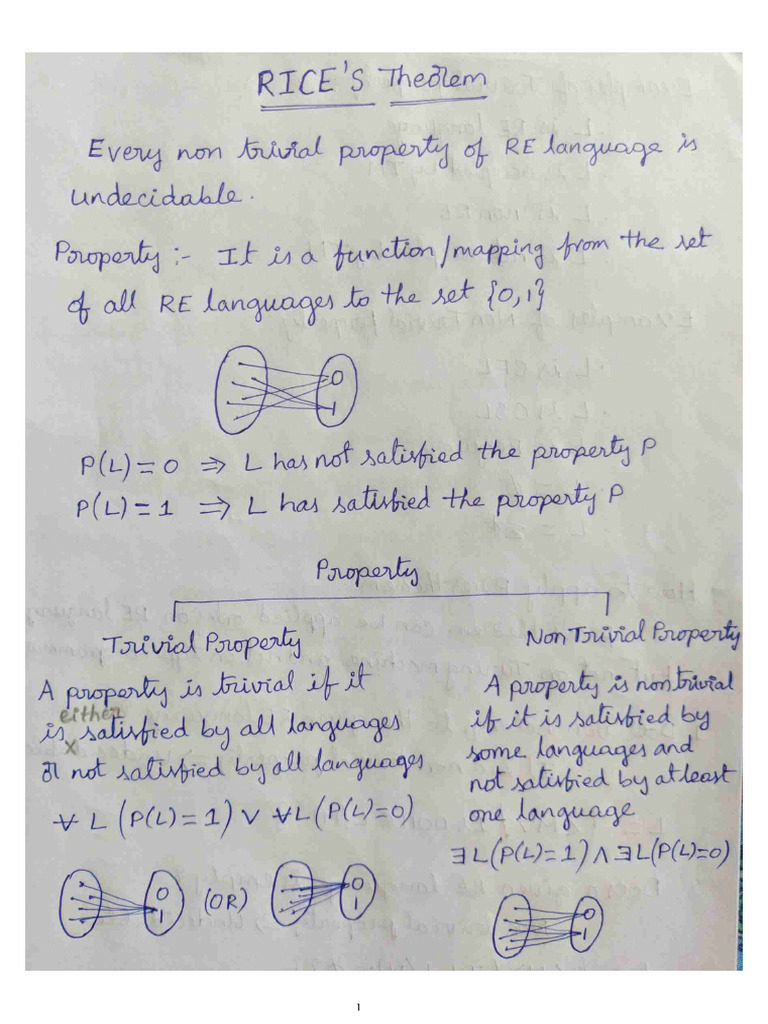 RICE'S Theorem
Every non trivial property of RE language is
undecidable.
Property :- It is a function/mapping from the set
of all RE languages to the set {0,1}
0
1
P(L) = 0 ⇒ L has not satisfied the property P
P(L) = 1 ⇒ L has satisfied the property P
Property
Trivial Property
A property is trivial if it
either
is x satisfied by all languages
or not satisfied by all languages
∀ L (P(L)=1) ∨ ∀L(P(L)=0)
0
1
(OR)
0
1
Non Trivial Property
A property is nontrivial
if it is satisfied by
some languages and
not satisfied by atleast
one language
∃L(P(L)=1) ∧ ∃L(P(L)=0)
0
1
1